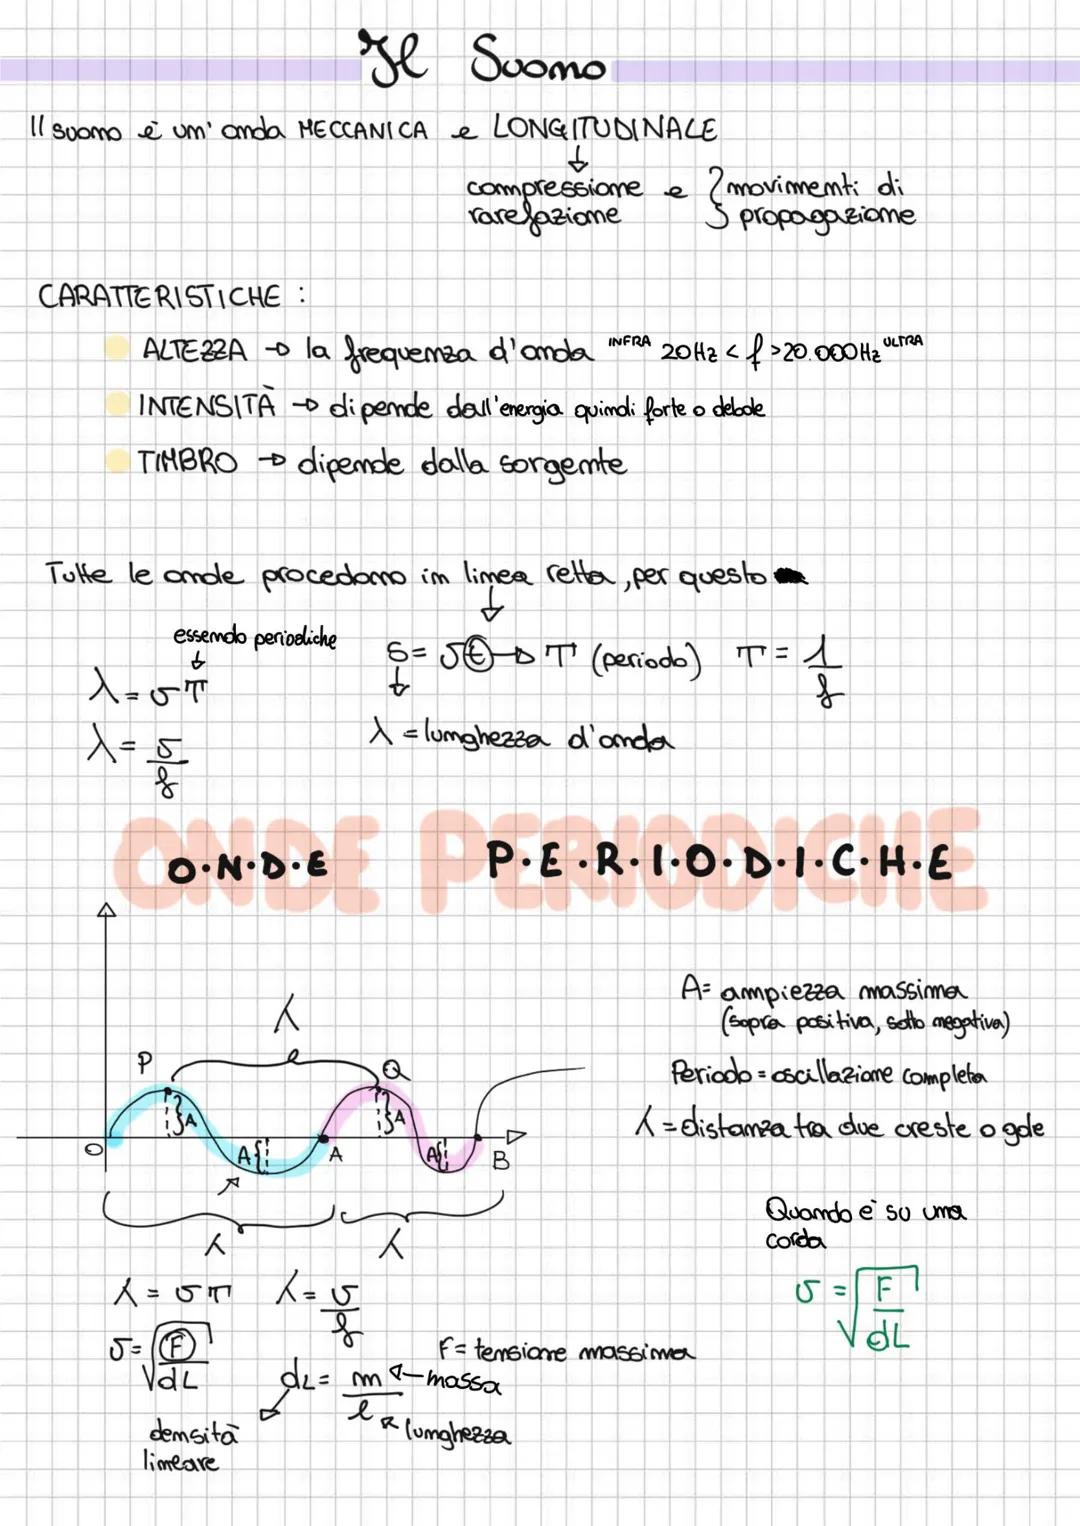 Il Suono
Il suono è un' onda MECCANICA e LONGITUDINALE
compressione e rarefazione } movimenti di propagazione
CARATTERISTICHE :
ALTEZZA → la frequenza d'onda INFRA 20Hz < f >20.000Hz ULTRA
INTENSITÀ → dipende dall'energia quindi forte o debole
TIMBRO → dipende dalla sorgente
Tutte le onde procedono in linea retta, per questo
essendo periodiche
S = v t → T (periodo) T = 1/f
λ = v T
λ = lunghezza d'onda
λ = v/f
ONDE PERIODICHE
O·N·D·E P·E·R·I·O·D·I·C·H·E
A = ampiezza massima
(sopra positiva, sotto negativa)
λ
P Q
Periodo = oscillazione completa
A A
λ = distanza tra due creste o gole
O A A A B
Quando è su una
corda
λ λ
λ = v T λ = v/f
v = √F/dL
v = √F/dL
F = tensione massima
dL = m/l ← massa
lunghezza
densità
lineare